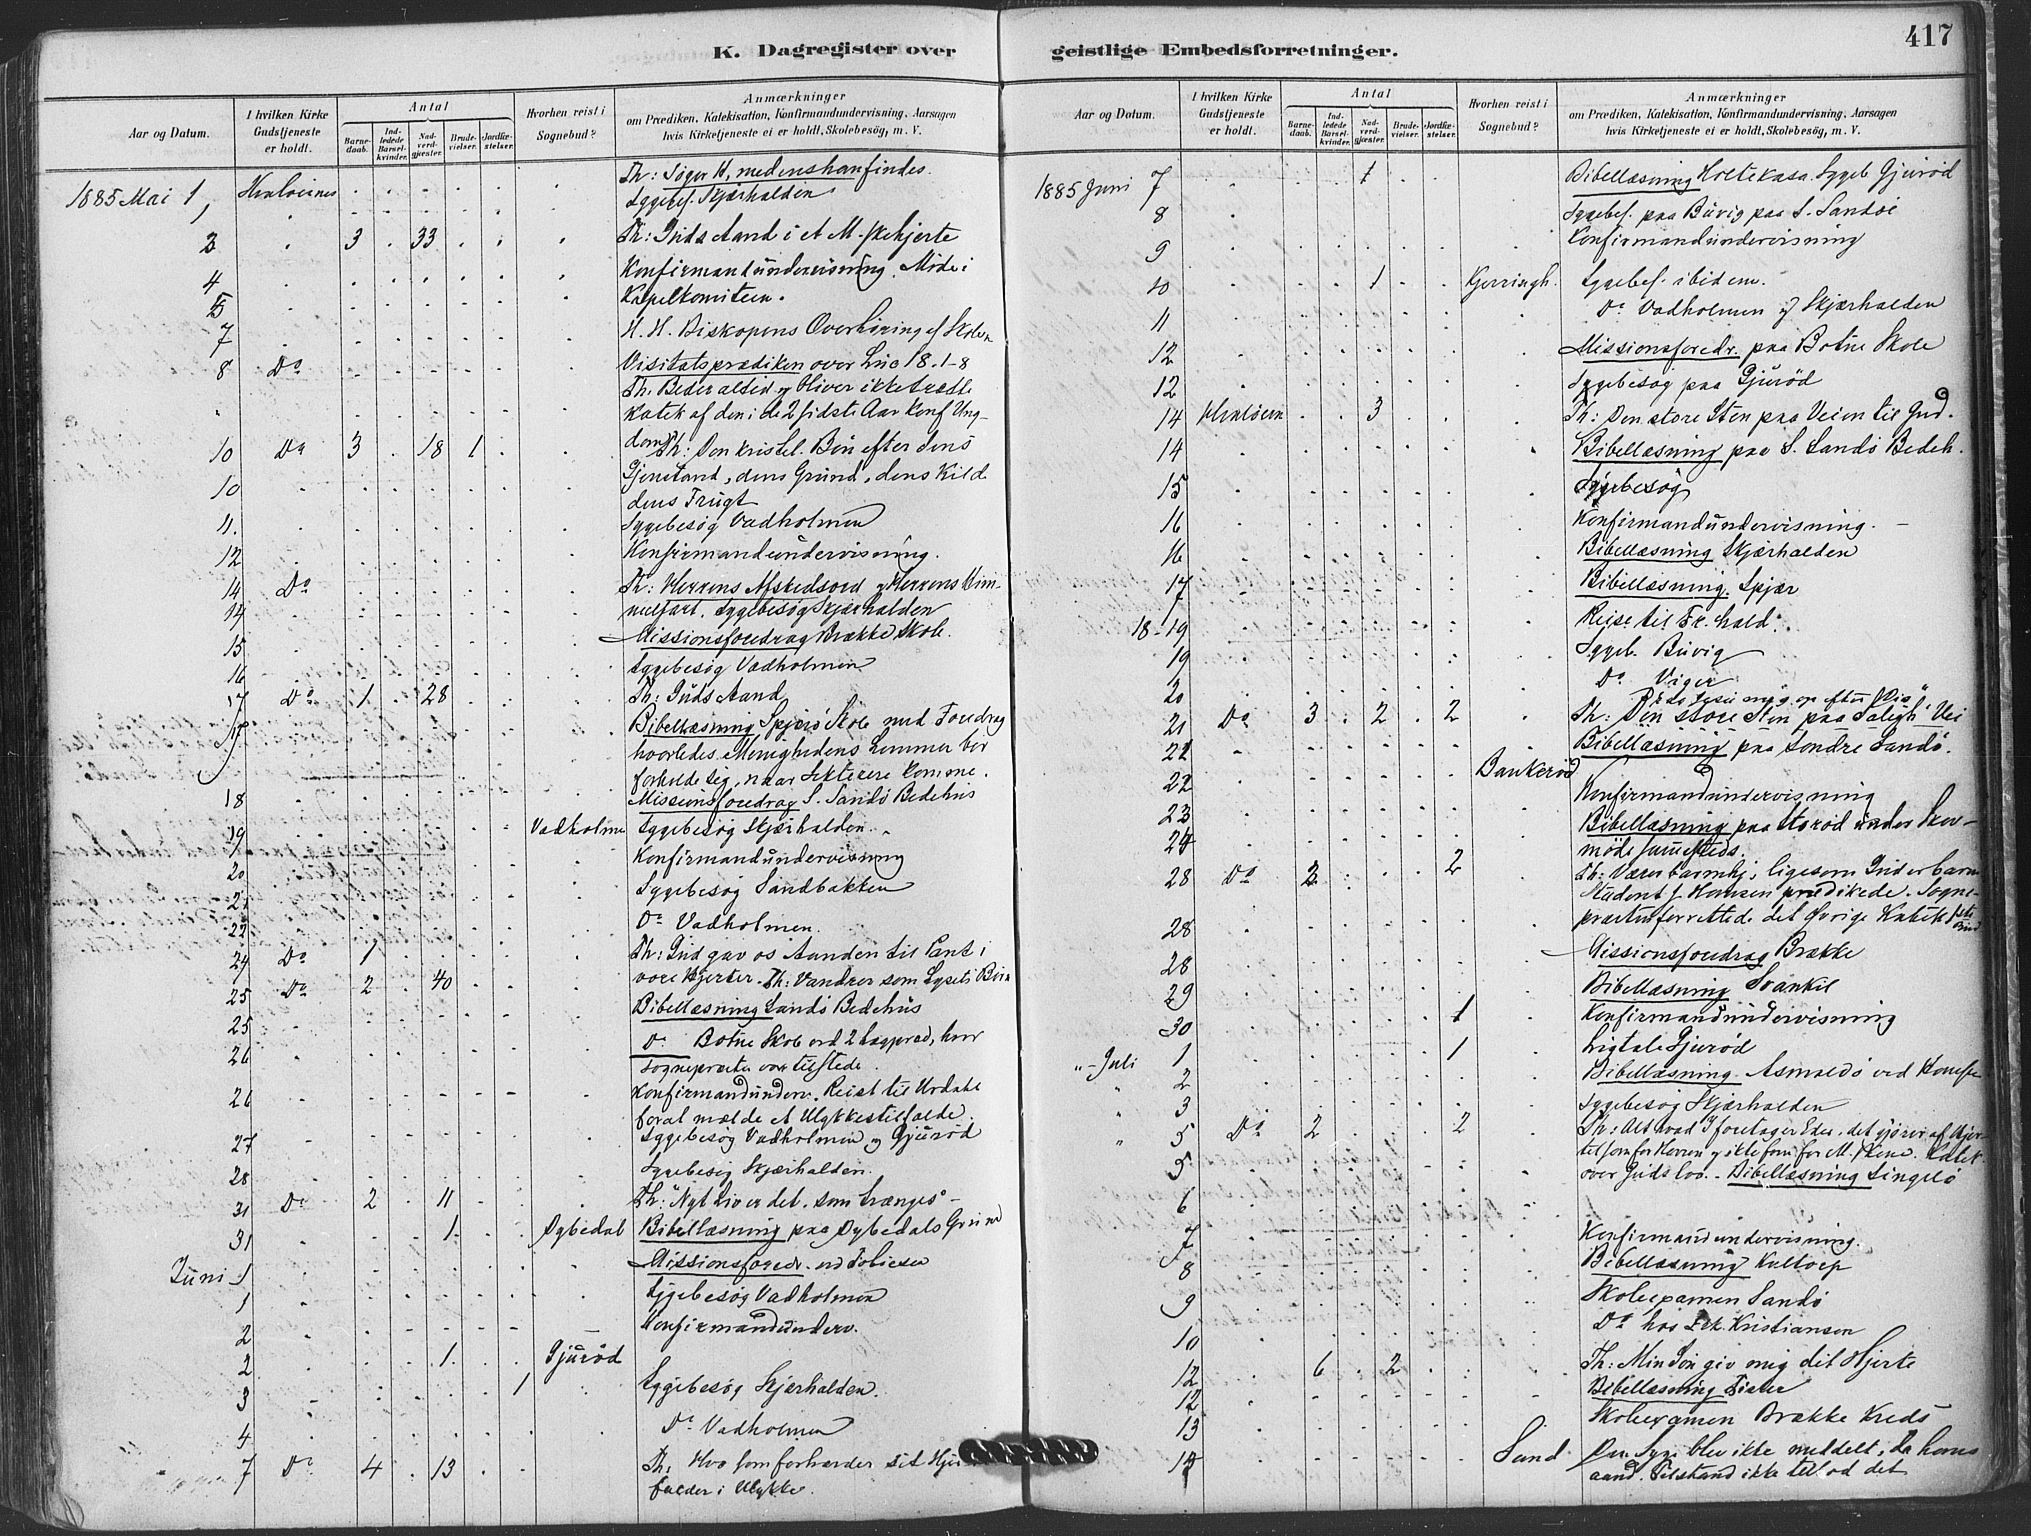 K. Dagregister over
geistlige Embedsforretninger.
417
Aar og Datum.
I hvilken Kirke Gudstjeneste er holdt.
Antal
Barnedaab.
Indledede Barselkvinder.
Nadverdgjæster.
Brudevielser.
Jordfæstelser.
Hvorhen reist i Sognebud?
Anmærkninger
om Prædiken, Katekisation, Konfirmandundervisning, Aarsagen
hvis Kirketjeneste ei er holdt, Skolebesøg, m. V.
1885 Mai 1 Hvaløernes Th: Søger H, medens han findes.
Sygebes. Skjærhalden
3 3 33 Th: Guds Aand i et M.skehjerte
4 Konfirmandundervisning. Møde i
5 Kapelkomiteen.
7 H. H. Biskopens Overhøring af Skolen
8 Do Visitatsprædiken over Luc 18.1-8
Th. Beder altid og bliver ikke trætte
Katek af den i de 2 sidste Aar Konf Ung-
10 Do 3 18 1 dom Th: Den kristel. Bøn efter dens
10 Gjenstand, dens Grund, dens Kild
dens Frugt
11. Sygebesøg Vadholmen
12 Konfirmandundervisning.
14 Do Th: Herrens Afskedsord og Herrens Him-
14 melfart. Sygebesøg Skjærhalden
15 Missionsforedrag Brække Skole.
16 Sygebesøg Vadholmen
17 Do 1 28 Th: Guds Aand
17 Bibellæsning Spjærø Skole med Foredrag
hvorledes Menighedens Lemmer bør
forholde sig, naar Sekterere komme.
18 Missionsforedrag S. Sandø Bedehus
19 Vadholme Sygebesøg Skjærhalden.
20 Konfirmandundervisning
21 Sygebesøg Sandbakken
22 Do Vadholmen.
24 Do 1 Th: Gud gav os Aanden til Pant i
25 Do 2 40 vore Hjerter. Th: Vandrer som Lysets Børn
25 Bibellæsning Sandø Bedehus
26 Do Botne Skole ved 2 Lægpræd, hvor
Sognepræsten var tilstede.
26 Konfirmandunderv. Reist til Urdale
for at melde et Ulykkestilfælde.
27 Sygebesøg Vadholmen og Gjurød
28 Sygebesøg Skjærhalden.
31 Do 2 11 Th: "Nyt Liv er det, som trænges"
31 1. Dybedal Bibellæsning paa Dybedals Grund
Juni 1 Missionsforedr. ved Tobiesen
1 Sygebesøg Vadholmen
2 Konfirmandunderv.
2 1. Gjurød
3 1 Sygebesøg Skjærhalden.
4 Do Vadholmen
7 Do 4 13 Th: Hvo som forhærder sit Hjer
falder i Ulykke.
Aar og Datum.
I hvilken Kirke Gudstjeneste er holdt.
Antal
Barnedaab.
Indledede Barselkvinder.
Nadverdgjæster.
Brudevielser.
Jordfæstelser.
Hvorhen reist i Sognebud?
Anmærkninger
om Prædiken, Katekisation, Konfirmandundervisning, Aarsagen
hvis Kirketjeneste ei er holdt, Skolebesøg, m. V.
1885 Juni 7 1 Bibellæsning Holtekasa. Sygeb Gjurød
8 Sygebes. paa Buvig paa S. Sandøe
9 Konfirmandundervisning
10 1 Gjerringh. Sygebes. ibidem.
11 Do Vadholmen og Skjærhalden
12 Missionsforedr. paa Botne Skole
12 Sygebesøg paa Gjurød
14 Hvaløern 3 Th: Den store Sten paa Veien til Gud.
14 Bibellæsning paa S. Sandø Bedeh.
15 Sygebesøg
16 Konfirmandundervisning.
16 Bibellæsning Skjærhalden
17 Bibellæsning. Spjær
18-19 Reise til Fr.hald.
19 Sygeb. Buvig
20 Do Viger
21 Do 3 2 2 Th: Den store Sten paa Saligh. Vei
22 Bibellæsning paa søndre Sandø.
22 Bankerød
23 Konfirmandundervisning
24 Bibellæsning paa Storød under Skov-
møde sammesteds.
28 Do 3 2 Th: Værer barmhj, ligesom Gud er barm
Student J. Hansen prædikede. Sogne-
28 præsten forrettede det øvrige Katek
28 Missionsforedrag Brække
29 Bibellæsning Svankil
30 1 Konfirmandundervisning
" - Juli 1 1 Ligtale Gjurød
2 Bibellæsning Asmalø ved
" 3 Sygebesøg Skjærhalden
" 5 Do 2 2 Th: Alt hvad I foretager Eder, det gjører af Hjer-
5 tet som for Herren og ikke som for M.skene. Katek
over Guds Lov. - Bibellæsning Singelø
6
7 Konfirmandundervisning.
8 Bibellæsning
9 Skoleexamen Sandø
10 Do hos Kristiansen
12 6 2 Th: Min Søn giv mig dit Hjerte
12 Bibellæsning
13 Skoleexamen Brække Kreds
14 Sand Den Syge blev ikke meddelt, da hans
aand. Tilstand ikke tillod det